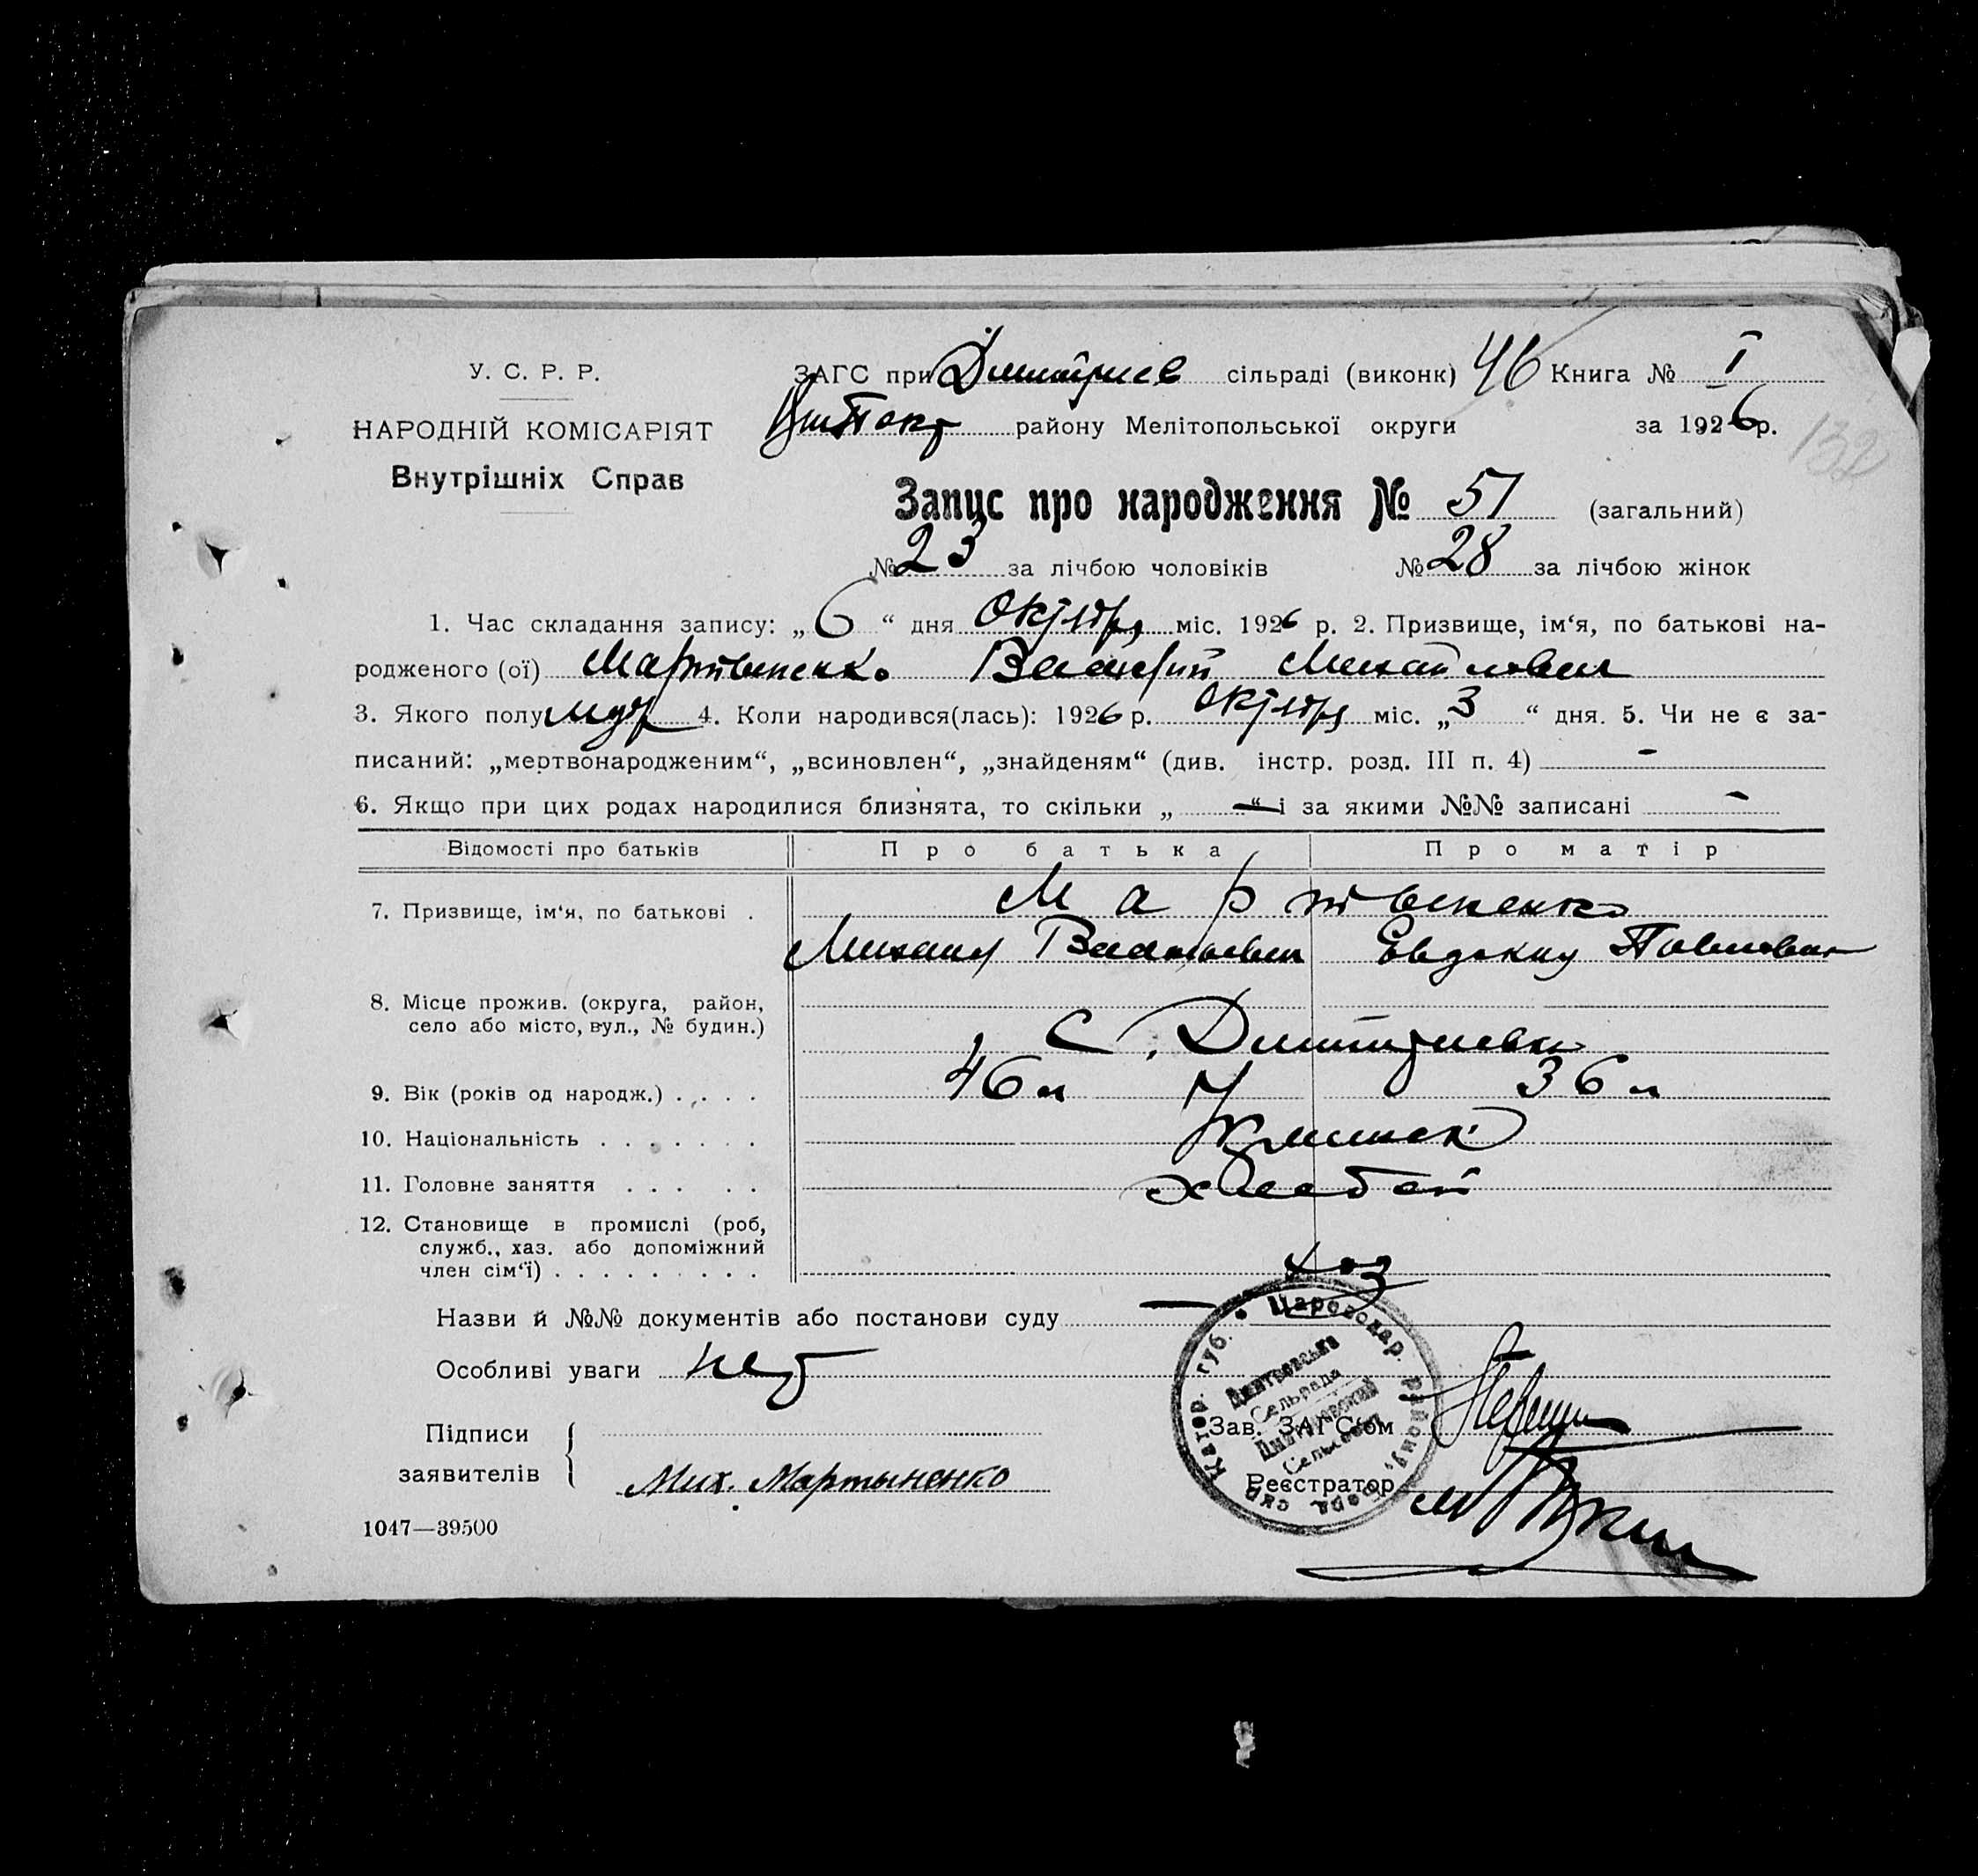 У. С. Р. Р.
НАРОДНІЙ КОМІСАРІЯТ
Внутрішніх Справ
ЗАГС при Дмитриев сільраді (виконк) 46 Книга № I
району Мелітопольської округи за 1926 р.
132
Запис про народження № 51 (загальний)
№ 23 за лічбою чоловіків № 28 за лічбою жінок
1. Час складання запису: „ 6 “ дня октября міс. 1926 р. 2. Призвище, ім‘я, по батькові на-
родженого (ої) Мартыненко Михайлович
3. Якого полу муж 4. Коли народився(лась): 1926 р. октября міс. „ 3 “ дня. 5. Чи не є за-
писаний: „мертвонародженим“, „всиновлен“, „знайденям“ (див. інстр. розд. III п. 4) -
6. Якщо при цих родах народилися близнята, то скільки „ — “ і за якими №№ записані -
Відомості про батьків Про батька Про матір
7. Призвище, ім‘я, по батькові . Мартыненко
Михаил Васильевич Евдокия Павловна
8. Місце прожив. (округа, район,
село або місто, вул., № будин.) с. Дмитриевка
9. Вік (років од народж.) . . . . 46 л 36 л
10. Національність . . . . . . . Украинск
11. Головне заняття . . . . . хлебоп
12. Становище в промислі (роб,
служб., хаз. або допоміжний
член сім‘ї) . . . . . . . . . хоз
Назви й №№ документів або постанови суду —
Особливі уваги нет
Підписи
заявителів
Мих. Мартыненко
Зав. ЗАГС‘ом
Реєстратор
Цареводар. району, Катер. губ.
Дмитровська
Сельрада
Дмитровский
Сельсовет
1047—39500